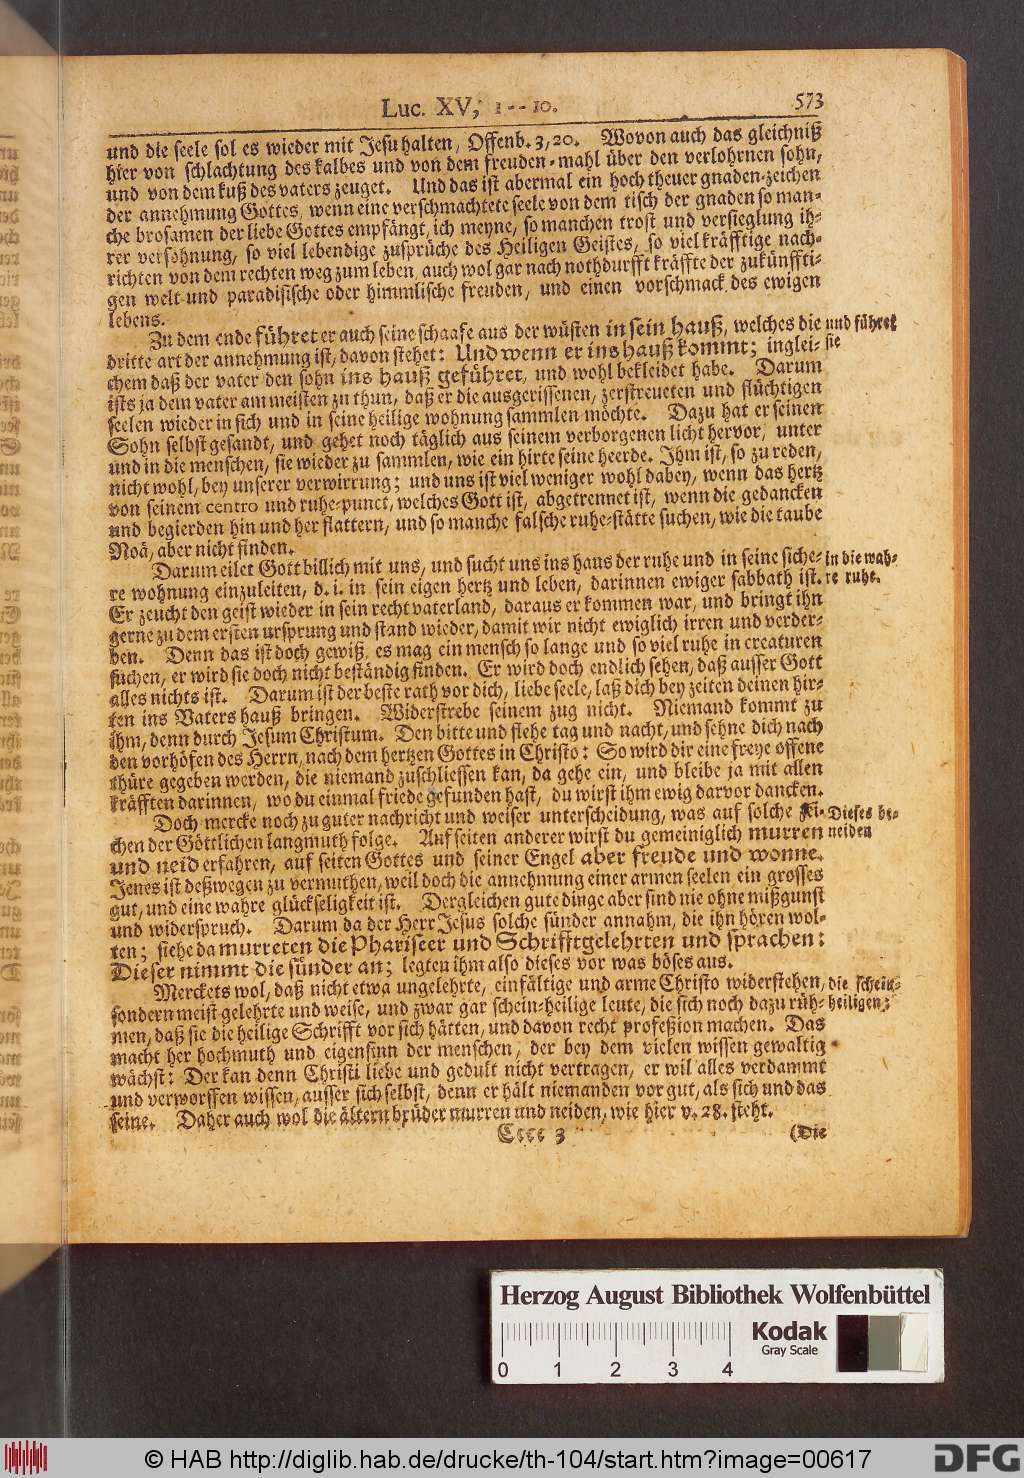 Luc. XV, 1--10. 573
und die seele sol es wieder mit Jesu halten, Offenb. 3, 20. Wovon auch das gleichniß
hier von schlachtung des kalbes und von dem freuden-mahl über den verlohrnen sohn,
und von dem kuß des vaters zeuget. Und das ist abermal ein hoch theuer gnaden-zeichen
der annehmung Gottes, wenn eine verschmachtete seele von dem tisch der gnaden so man-
che brosamen der liebe Gottes empfängt, ich meyne, so manchen trost und versieglung ih-
rer versöhnung, so viel lebendige zusprüche des Heiligen Geistes, so viel kräfftige nach-
richten von dem rechten weg zum leben, auch wol gar nach nothdurfft kräffte der zukünffti-
gen welt und paradisische oder himmlische freuden, und einen vorschmack des ewigen
lebens.
Zu dem ende führet er auch seine schaafe aus der wüsten in sein hauß, welches die
und führet
dritte art der annehmung ist, davon stehet: Und wenn er ins hauß kommt; inglei-
sie
chem daß der vater den sohn ins hauß geführet, und wohl bekleidet habe. Darum
ists ja dem vater am meisten zu thun, daß er die ausgerissenen, zerstreueten und flüchtigen
seelen wieder in sich und in seine heilige wohnung sammlen möchte. Dazu hat er seinen
Sohn selbst gesandt, und gehet noch täglich aus seinem verborgenen licht hervor, unter
und in die menschen, sie wieder zu sammlen, wie ein hirte seine heerde. Ihm ist, so zu reden,
nicht wohl, bey unserer verwirrung; und uns ist viel weniger wohl dabey, wenn das hertz
von seinem centro und ruhe-punct, welches Gott ist, abgetrennet ist, wenn die gedancken
und begierden hin und her flattern, und so manche falsche ruhe-stätte suchen, wie die taube
Noä, aber nicht finden.
Darum eilet Gott billich mit uns, und sucht uns ins haus der ruhe und in seine siche-
in die wah-
re wohnung einzuleiten, d. i. in sein eigen hertz und leben, darinnen ewiger sabbath ist.
re ruhe.
Er zeucht den geist wieder in sein recht vaterland, daraus er kommen war, und bringt ihn
gerne zu dem ersten ursprung und stand wieder, damit wir nicht ewiglich irren und verder-
ben. Denn das ist doch gewiß, es mag ein mensch so lange und so viel ruhe in creaturen
suchen, er wird sie doch nicht beständig finden. Er wird doch endlich sehen, daß ausser Gott
alles nichts ist. Darum ist der beste rath vor dich, liebe seele, laß dich bey zeiten deinen hir-
ten ins Vaters hauß bringen. Widerstrebe seinem zug nicht. Niemand kommt zu
ihm, denn durch Jesum Christum. Den bitte und flehe tag und nacht, und sehne dich nach
den vorhöfen des Herrn, nach dem hertzen Gottes in Christo: So wird dir eine freye offene
thüre gegeben werden, die niemand zuschliessen kan, da gehe ein, und bleibe ja mit allen
kräfften darinnen, wo du einmal friede gefunden hast, du wirst ihm ewig darvor dancken.
Doch mercke noch zu guter nachricht und weiser unterscheidung, was auf solche zei-
Dieses be-
chen der Göttlichen langmuth folge. Auf seiten anderer wirst du gemeiniglich murren
neiden
und neid erfahren, auf seiten Gottes und seiner Engel aber freude und wonne.
Jenes ist deßwegen zu vermuthen, weil doch die annehmung einer armen seelen ein grosses
gut, und eine wahre glückseligkeit ist. Dergleichen gute dinge aber sind nie ohne mißgunst
und widerspruch. Darum da der Herr Jesus solche sünder annahm, die ihn hören wol-
ten; siehe da murreten die Phariseer und Schrifftgelehrten und sprachen:
Dieser nimmt die sünder an; legten ihm also dieses vor was böses aus.
Merckets wol, daß nicht etwa ungelehrte, einfältige und arme Christo widerstehen,
die schein-
sondern meist gelehrte und weise, und zwar gar schein-heilige leute, die sich noch dazu rüh-
heiligen;
men, daß sie die heilige Schrifft vor sich hätten, und davon recht profeßion machen. Das
macht her hochmuth und eigensinn der menschen, der bey dem vielen wissen gewaltig
wächst: Der kan denn Christi liebe und gedult nicht vertragen, er wil alles verdammt
und verworffen wissen, ausser sich selbst, denn er hält niemanden vor gut, als sich und das
seine. Daher auch wol die ältern brüder murren und neiden, wie hier v. 28. steht.
Cccc 3 (Die
Herzog August Bibliothek Wolfenbüttel
Kodak
Gray Scale
0 1 2 3 4
© HAB http://diglib.hab.de/drucke/th-104/start.htm?image=00617
DFG